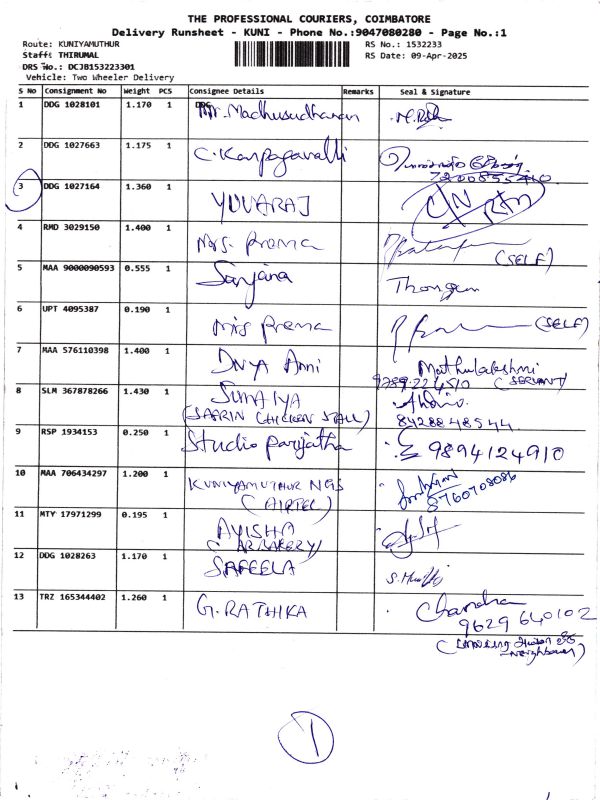 THE PROFESSIONAL COURIERS, COIMBATORE
Delivery Runsheet - KUNI - Phone No.:9047080280 - Page No.:1
Route: KUNIYAMUTHUR RS No.: 1532233
Staff: THIRUMAL RS Date: 09-Apr-2025
DRS No.: DCJB153223301
Vehicle: Two Wheeler Delivery
S No Consignment No Weight PCS Consignee Details Remarks Seal & Signature
1 DDG 1028101 1.170 1 Mr. Madhusudhanan
2 DDG 1027663 1.175 1 C. Karpagavalli
7200855410
3 DDG 1027164 1.360 1 YUVARAJ C/N
4 RMD 3029150 1.400 1 Mrs. Prema
(SELF)
5 MAA 9000090593 0.555 1 Sanjana
6 UPT 4095387 0.190 1 Mrs Prema (SELF)
7 MAA 576110398 1.400 1 Muthulakshmi
9789224510 (SERVANT)
8 SLM 367878266 1.430 1 SUMAIYA
(SAFRIN CHICKEN STALL) 8428848544
9 RSP 1934153 0.250 1 Studio parijatha 9894124910
10 MAA 706434297 1.200 1 KUNIYAMUTHUR NGS
(AIRTEL) 8760708086
11 MTY 17971299 0.195 1 AYISHA
12 DDG 1028263 1.170 1 SAFEELA
13 TRZ 165344402 1.260 1 G. RATHIKA Chandra
9629640102
Neighbour)
1